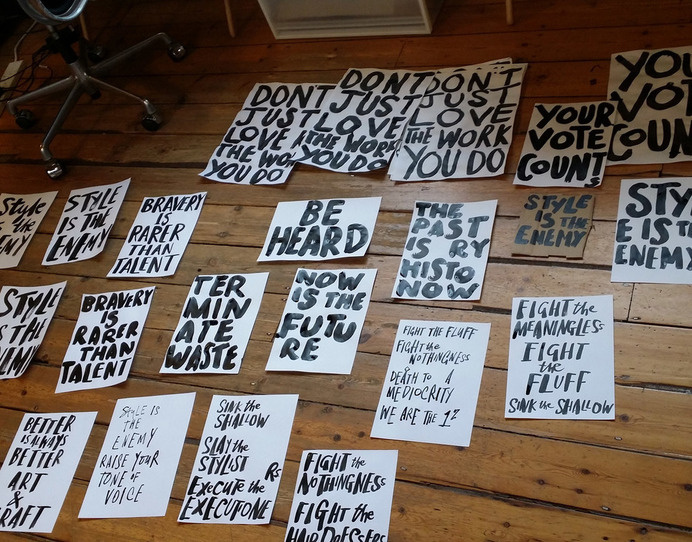 DONT
JUST
LOVE
THE WO
YOU DO
DONT
JUST
LOVE
THE WORK
YOU DO
DON'T
JUST
LOVE
THE WORK
YOU DO
YOUR
VOTE
COUNTS
YOU
VOT
COUN
Style
is the
EMY
STYLE
IS THE
ENEMY
BRAVERY
IS
RARER
THAN
TALENT
BE
HEARD
THE
PAST
IS RY
HISTO
NOW
STYLE
IS THE
ENEMY
STY
E IS TH
ENEMY
STYLE
IS THE
BRAVERY
IS
RARER
THAN
TALENT
TER
MIN
ATE
WASTE
NOW
IS THE
FUTU
RE
FIGHT THE FLUFF
FIGHT the
NOTHINGNESS
DEATH TO A
MEDIOCRITY
WE ARE THE 1st
FIGHT the
MEANINGLESS
FIGHT
the
FLUFF
SINK the SHALLOW
BETTER
IS ALWAYS
BETTER
ART
&
RAFT
STYLE IS
THE
ENEMY
RAISE YOUR
TONE OF
VOICE
SINK the
SHALLOW
SLAY the
STYLIST
EXECUTE the RS
EXECUTONE
FIGHT the
NOTHINGNESS
FIGHT the
HAIRDRESSERS